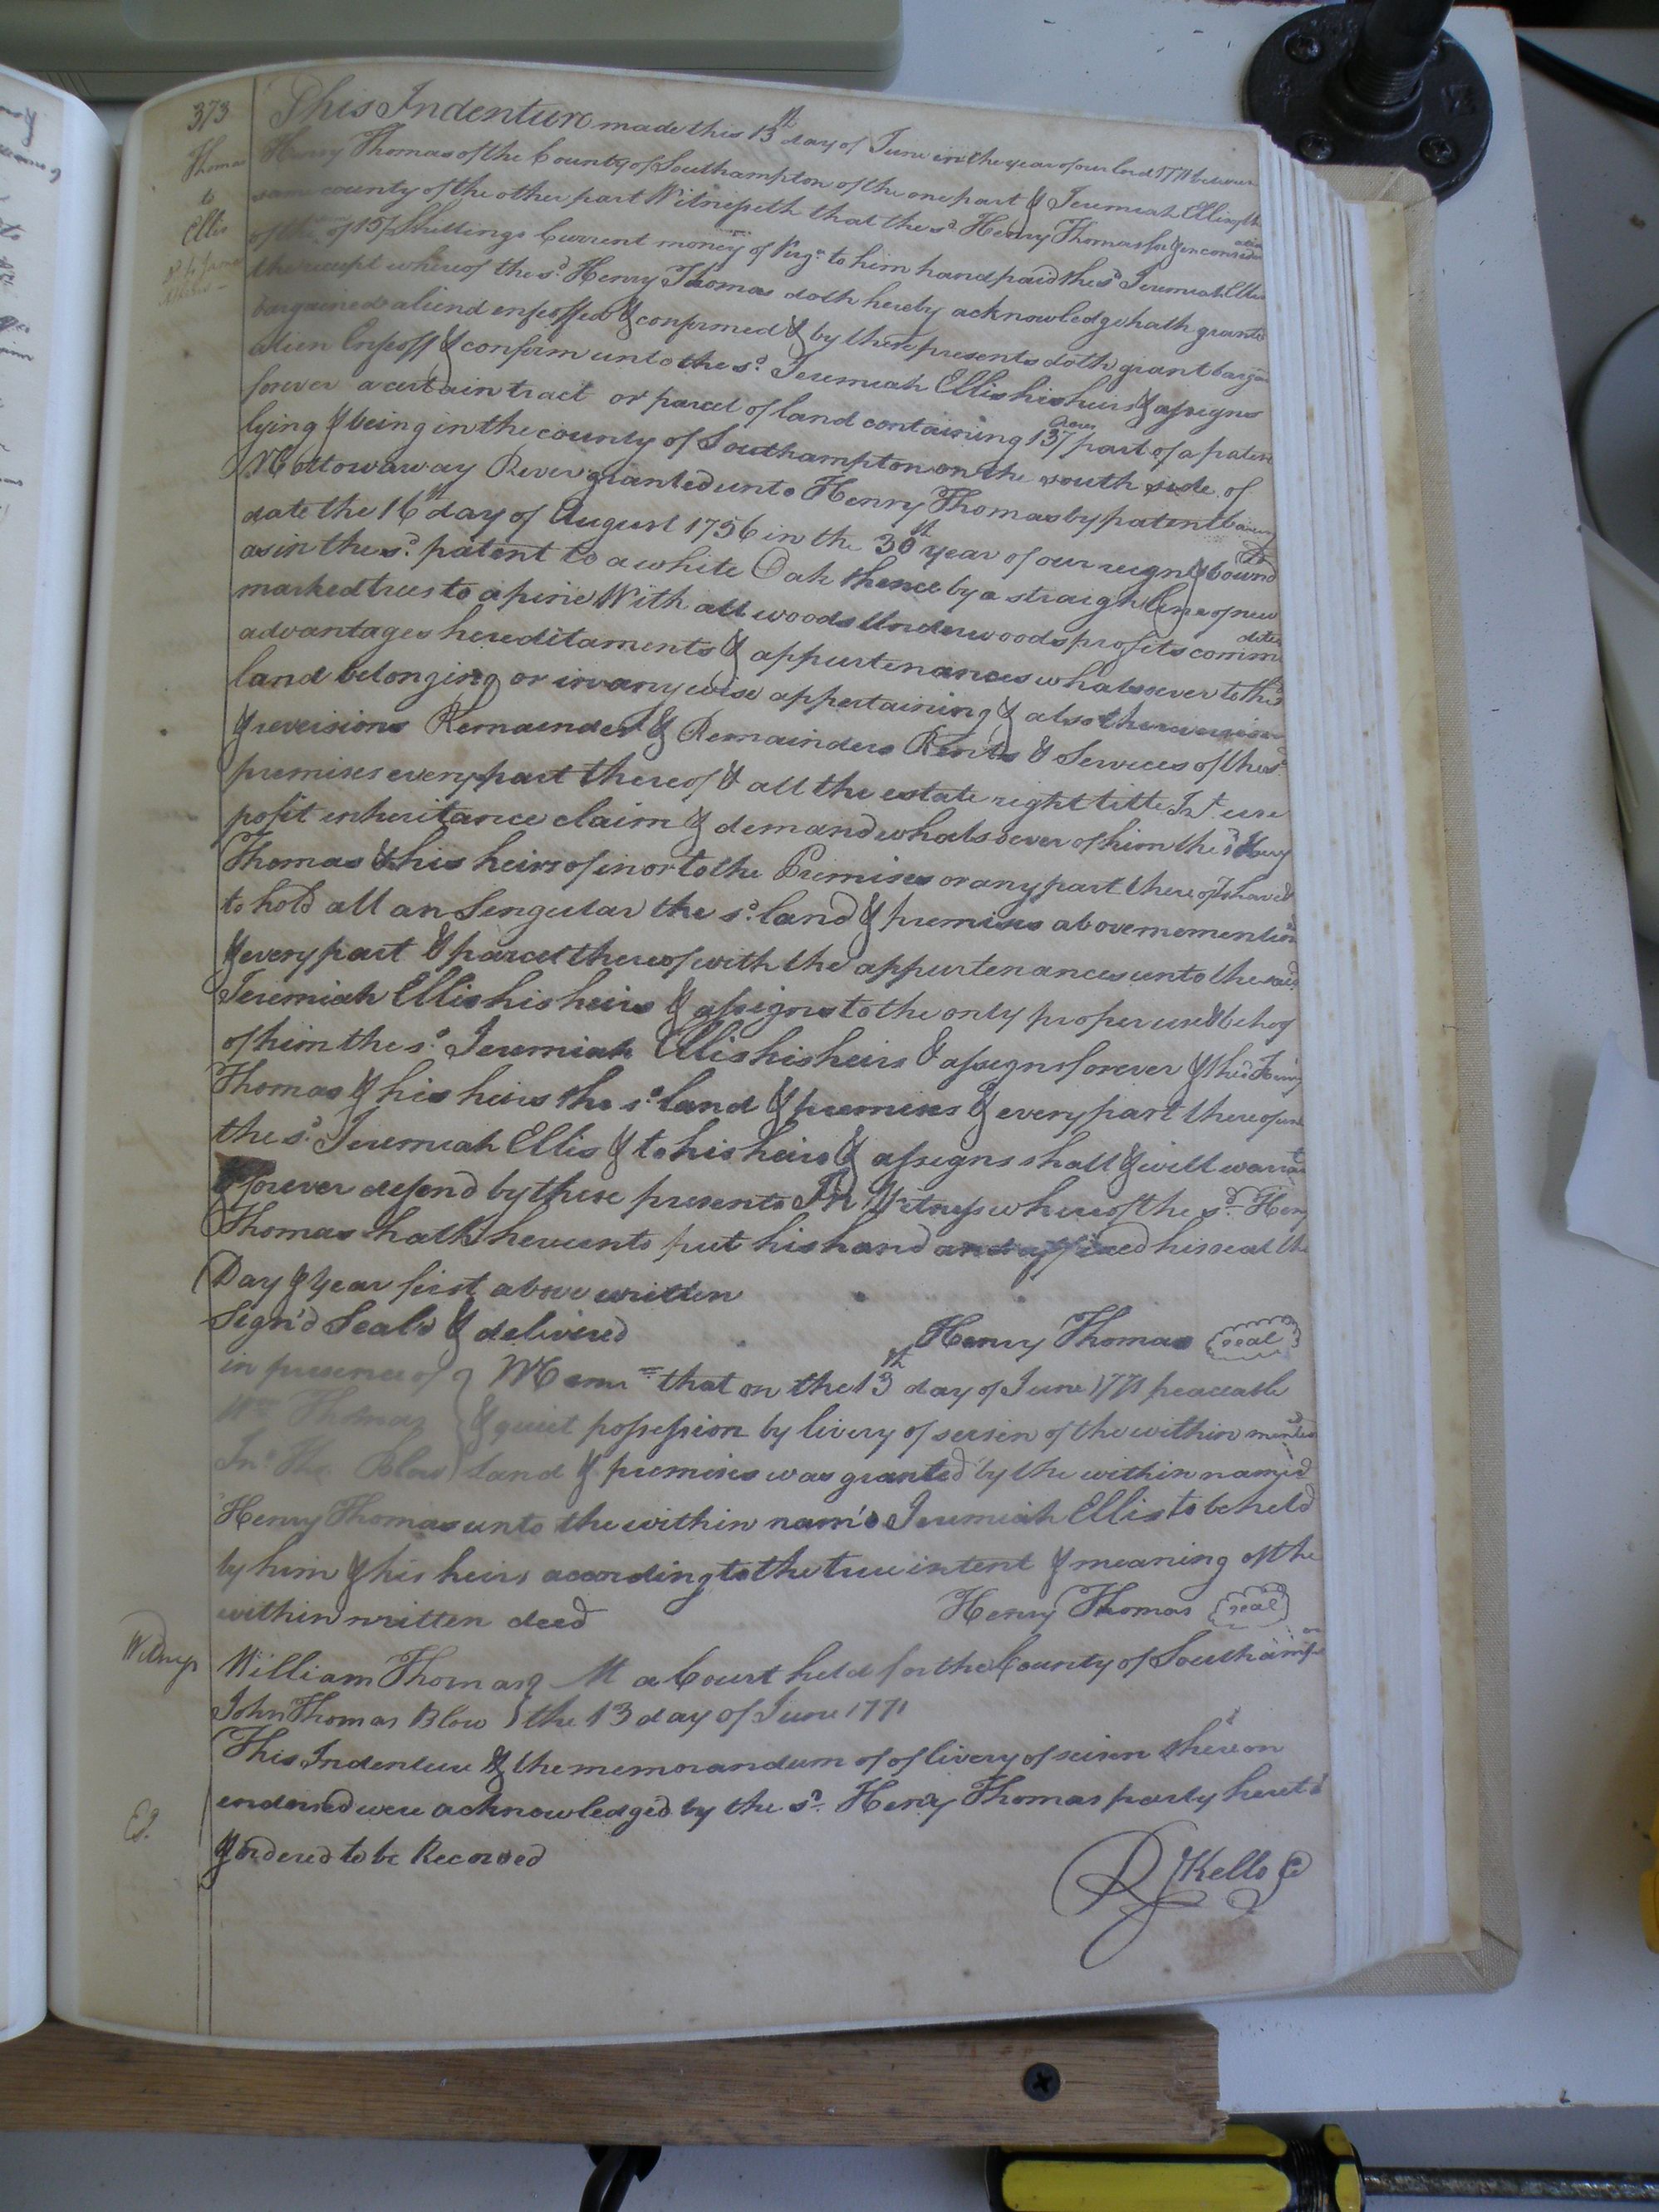 373
Thomas
to
Ellis
This Indenture made this 13th day of June in the year of our lord 1771 between
Henry Thomas of the County of Southampton of the one part & Jeremiah Ellis of the
same county of the other part Witnesseth that the sd. Henry Thomas for & in consideration
of the sum of 15/ Shillings Current money of Virga. to him hand paid the sd. Jeremiah Ellis
the receipt whereof the sd. Henry Thomas doth hereby acknowledge hath granted
bargained aliend enfeoffed & confirmed & by these presents doth grant bargain
alien Enfeoff & confirm unto the sd. Jeremiah Ellis his heirs & assigns
forever a certain tract or parcel of land containing 137 Acres part of a patent
lying & being in the county of Southampton on the south side of
Nottowaway River granted unto Henry Thomas by patent bearing
date the 16th day of August 1756 in the 30th year of our reign & bound
as in the sd. patent to a white Oak thence by a straight line of new
marked trees to a pine With all woods Underwoods profits commodities
advantages hereditaments & appurtenances whatsoever to the sd.
land belonging or in any wise appertaining & also the reversion
& reversions Remainder & Remainders Rents & Services of the sd.
premises every part thereof & all the estate right title Int. use
pofit inheritance claim & demand whatsoever of him the sd. Henry
Thomas & his heirs of in or to the Premises or any part thereof To have &
to hold all an Singular the sd. land & premises abovemementioned
& every part & parcel thereof with the appurtenances unto the said
Jeremiah Ellis his heirs & assigns to the only proper use & behoof
of him the sd. Jeremiah Ellis his heirs & assigns forever & the sd. Henry
Thomas & his heirs the sd. land & premises & every part thereof unto
the sd. Jeremiah Ellis & to his heirs & assigns shall & will warrant
& forever defend by these presents In Witness whereof the sd. Henry
Thomas hath hereunto put his hand and affixed his seal the
Day & Year first above written
Sign'd Seald & delivered
Henry Thomas seal
in presence of } Memm. that on the 13th day of June 1771 peaceable
Wm Thomas } & quiet possession by livery of seisen of the within mentioned
Jno. Tho. Blow } land & premises was granted by the within named
Henry Thomas unto the within nam'd Jeremiah Ellis to be held
by him & his heirs according to the true intent & meaning of the
within written deed Henry Thomas seal
Witness
William Thomas } At a Court held for the County of Southampton
John Thomas Blow } the 13 day of June 1771
This Indenture & the memorandum of of livery of seisin thereon
endorsed were acknowledged by the sd. Henry Thomas party hereto
& ordered to be Recorded
Ed.
R Kello C